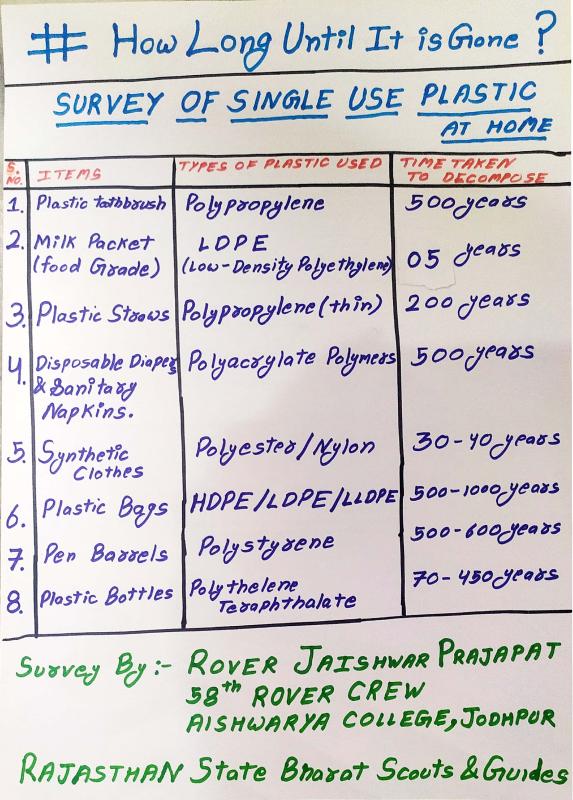 # How Long Until It is Gone ?
SURVEY OF SINGLE USE PLASTIC
AT HOME
S. NO. ITEMS TYPES OF PLASTIC USED TIME TAKEN TO DECOMPOSE
1. Plastic tothbrush Polypropylene 500 years
2. Milk Packet (food Grade) LDPE (Low-Density Polyethylene) 05 years
3. Plastic Straws Polypropylene (thin) 200 years
4. Disposable Diapers & Sanitary Napkins. Polyacrylate Polymers 500 years
5. Synthetic Clothes Polyester/Nylon 30-40 years
6. Plastic Bags HDPE/LDPE/LLDPE 500-1000 years
7. Pen Barrels Polystyrene 500-600 years
8. Plastic Bottles Polythelene Teraphthalate 70-450 years
Survey By:- ROVER JAISHWAR PRAJAPAT
58th ROVER CREW
AISHWARYA COLLEGE, JODHPUR
RAJASTHAN State Bharat Scouts & Guides